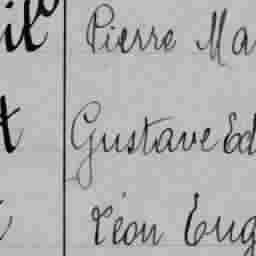 Pierre Ma
Gustave Ed
Léon Eug